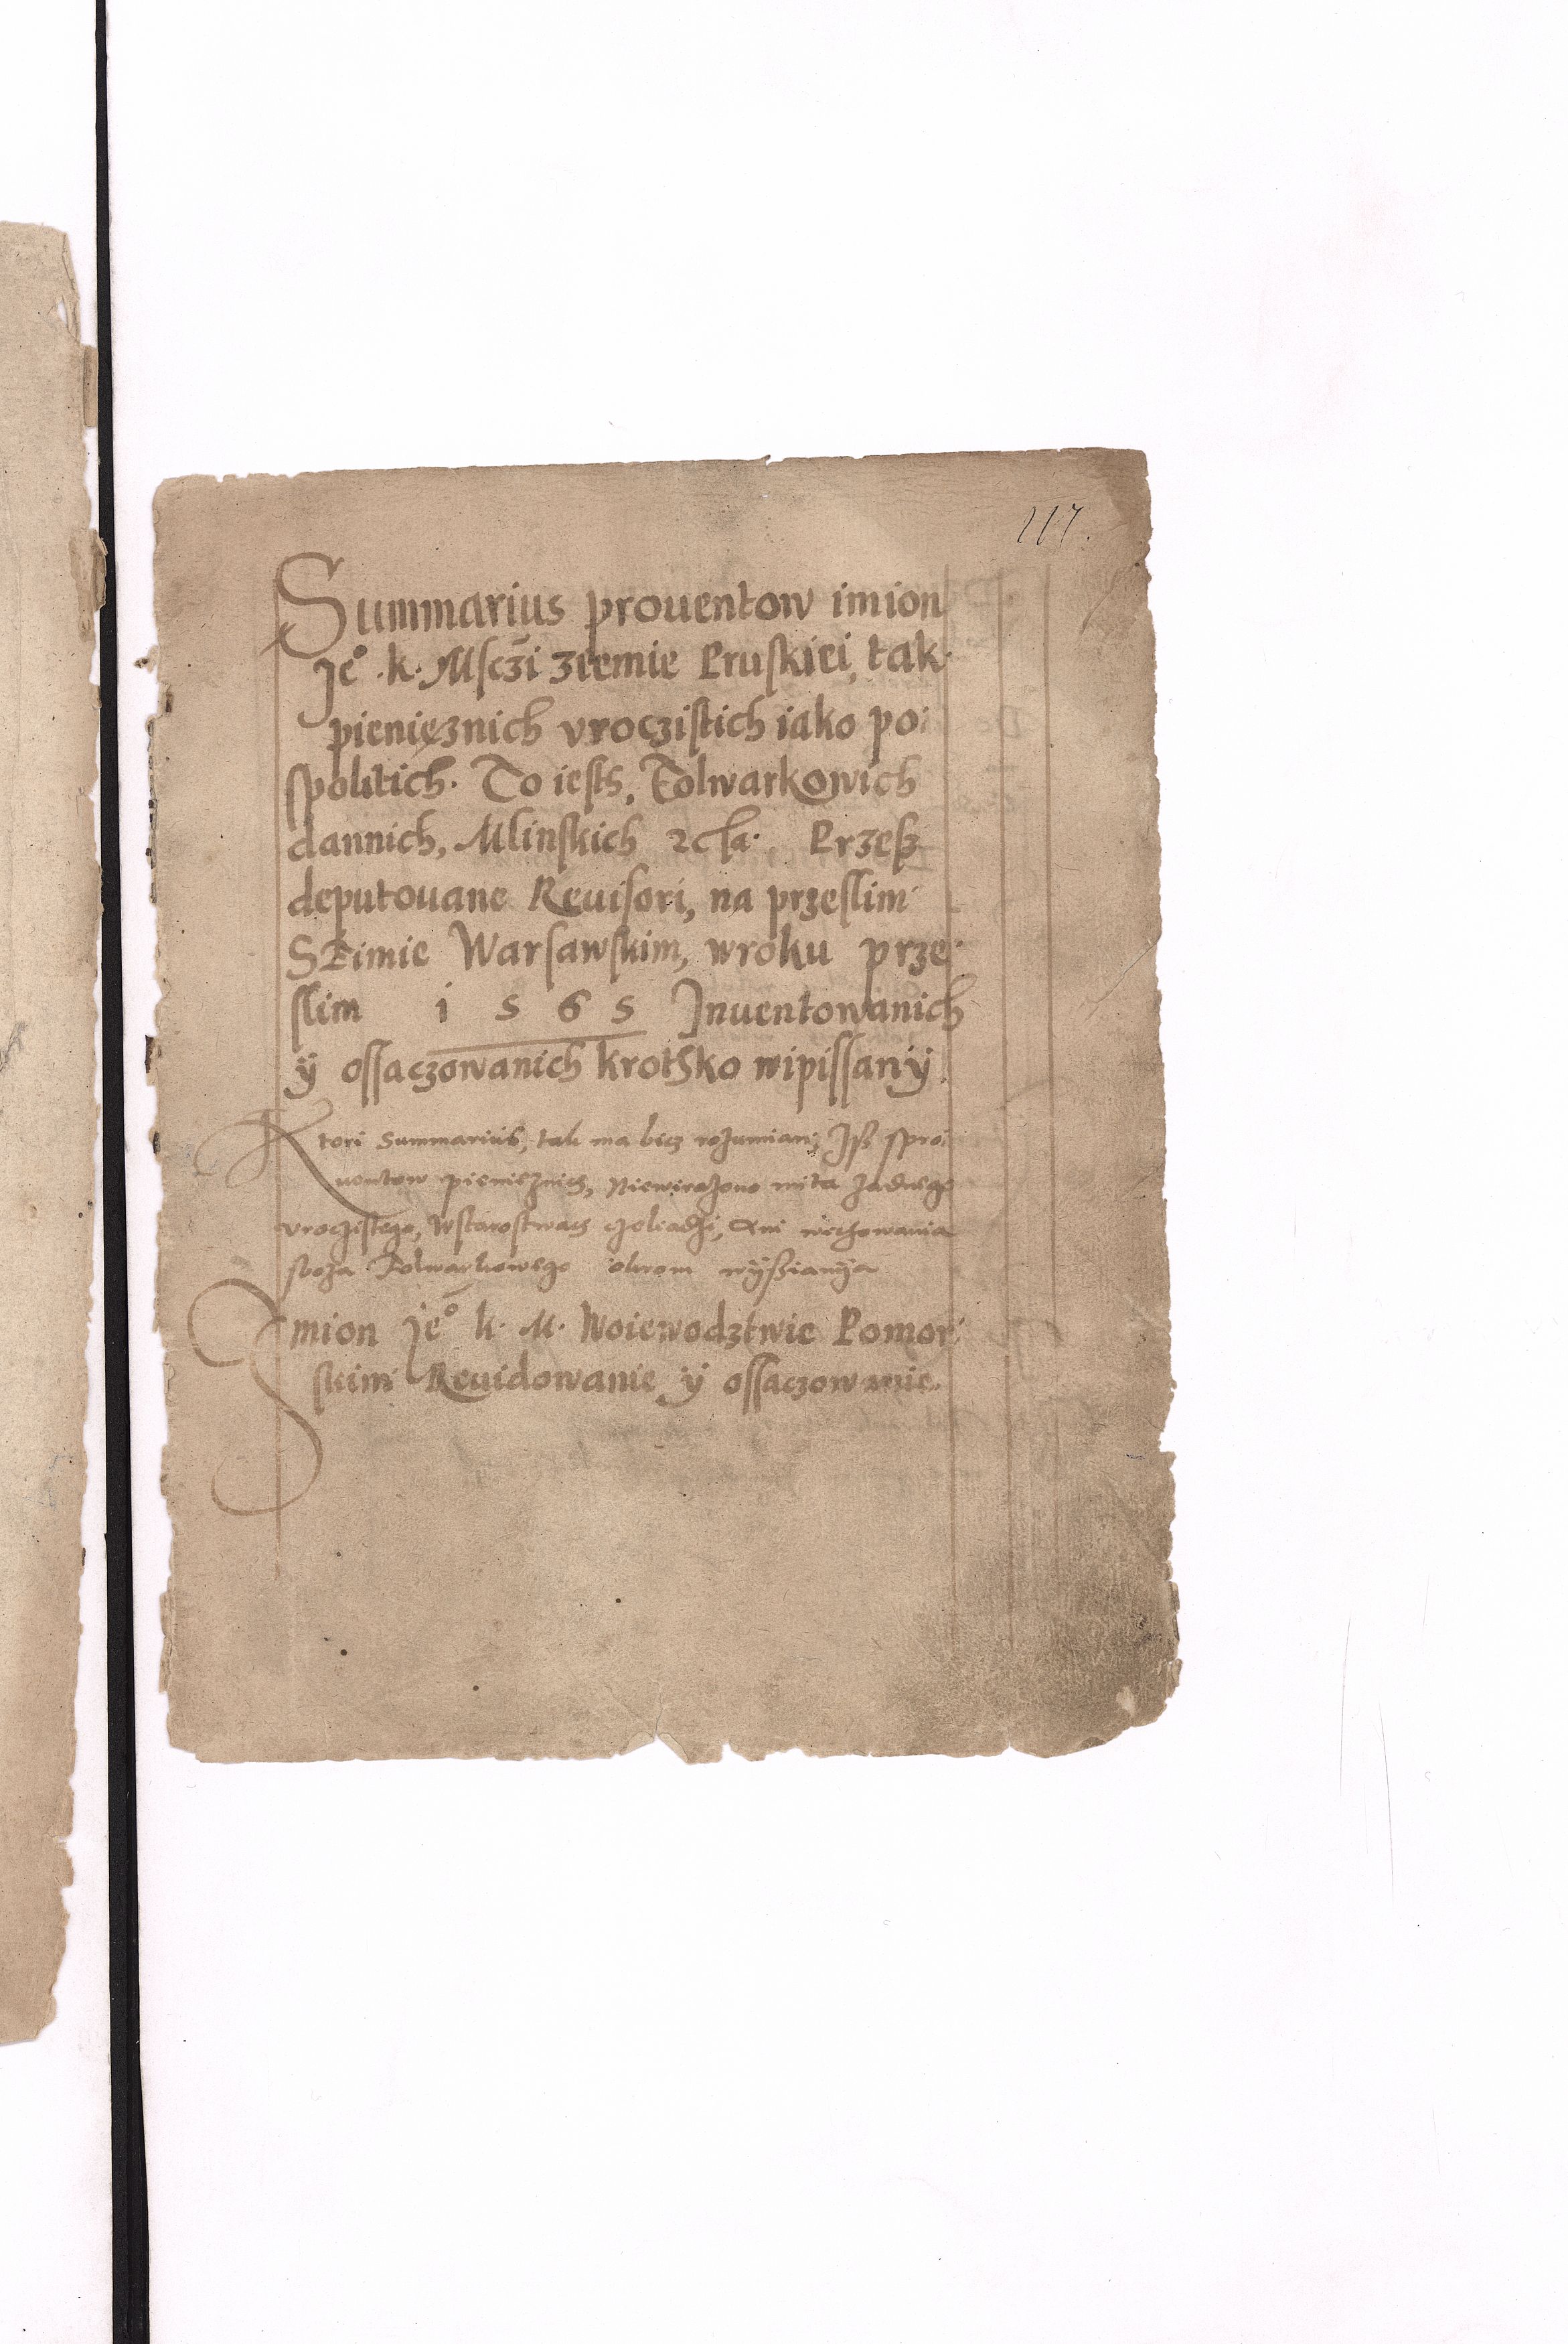 117.
Summarius prouentow imion
Je° .k. Msczi ziemie Pruskiei, tak
pienięznich vroczistich iako po:
spolitich. To iesth, Folwarkowich
dannich, Mlinskich Przesz
deputouane Reuisori, na przeslim
Seimie Warsawskim, wroku prze:
slim 1565 Inuentowanich
ÿ ossaczowanich krothko wipissanÿ
Ktori Summarius, tak ma bicz rozumian; Isz spro:
uentow pienieznich, Niewirazono mita zadnego
vroczistego, Wstarostwach czeliadzi, Ani wichowania
sboza Folwarkowego okrom wÿssianÿa
Imion je° k. M. Woiewodztwie Pomor:
skim Reuidowanie ÿ ossaczowanie.